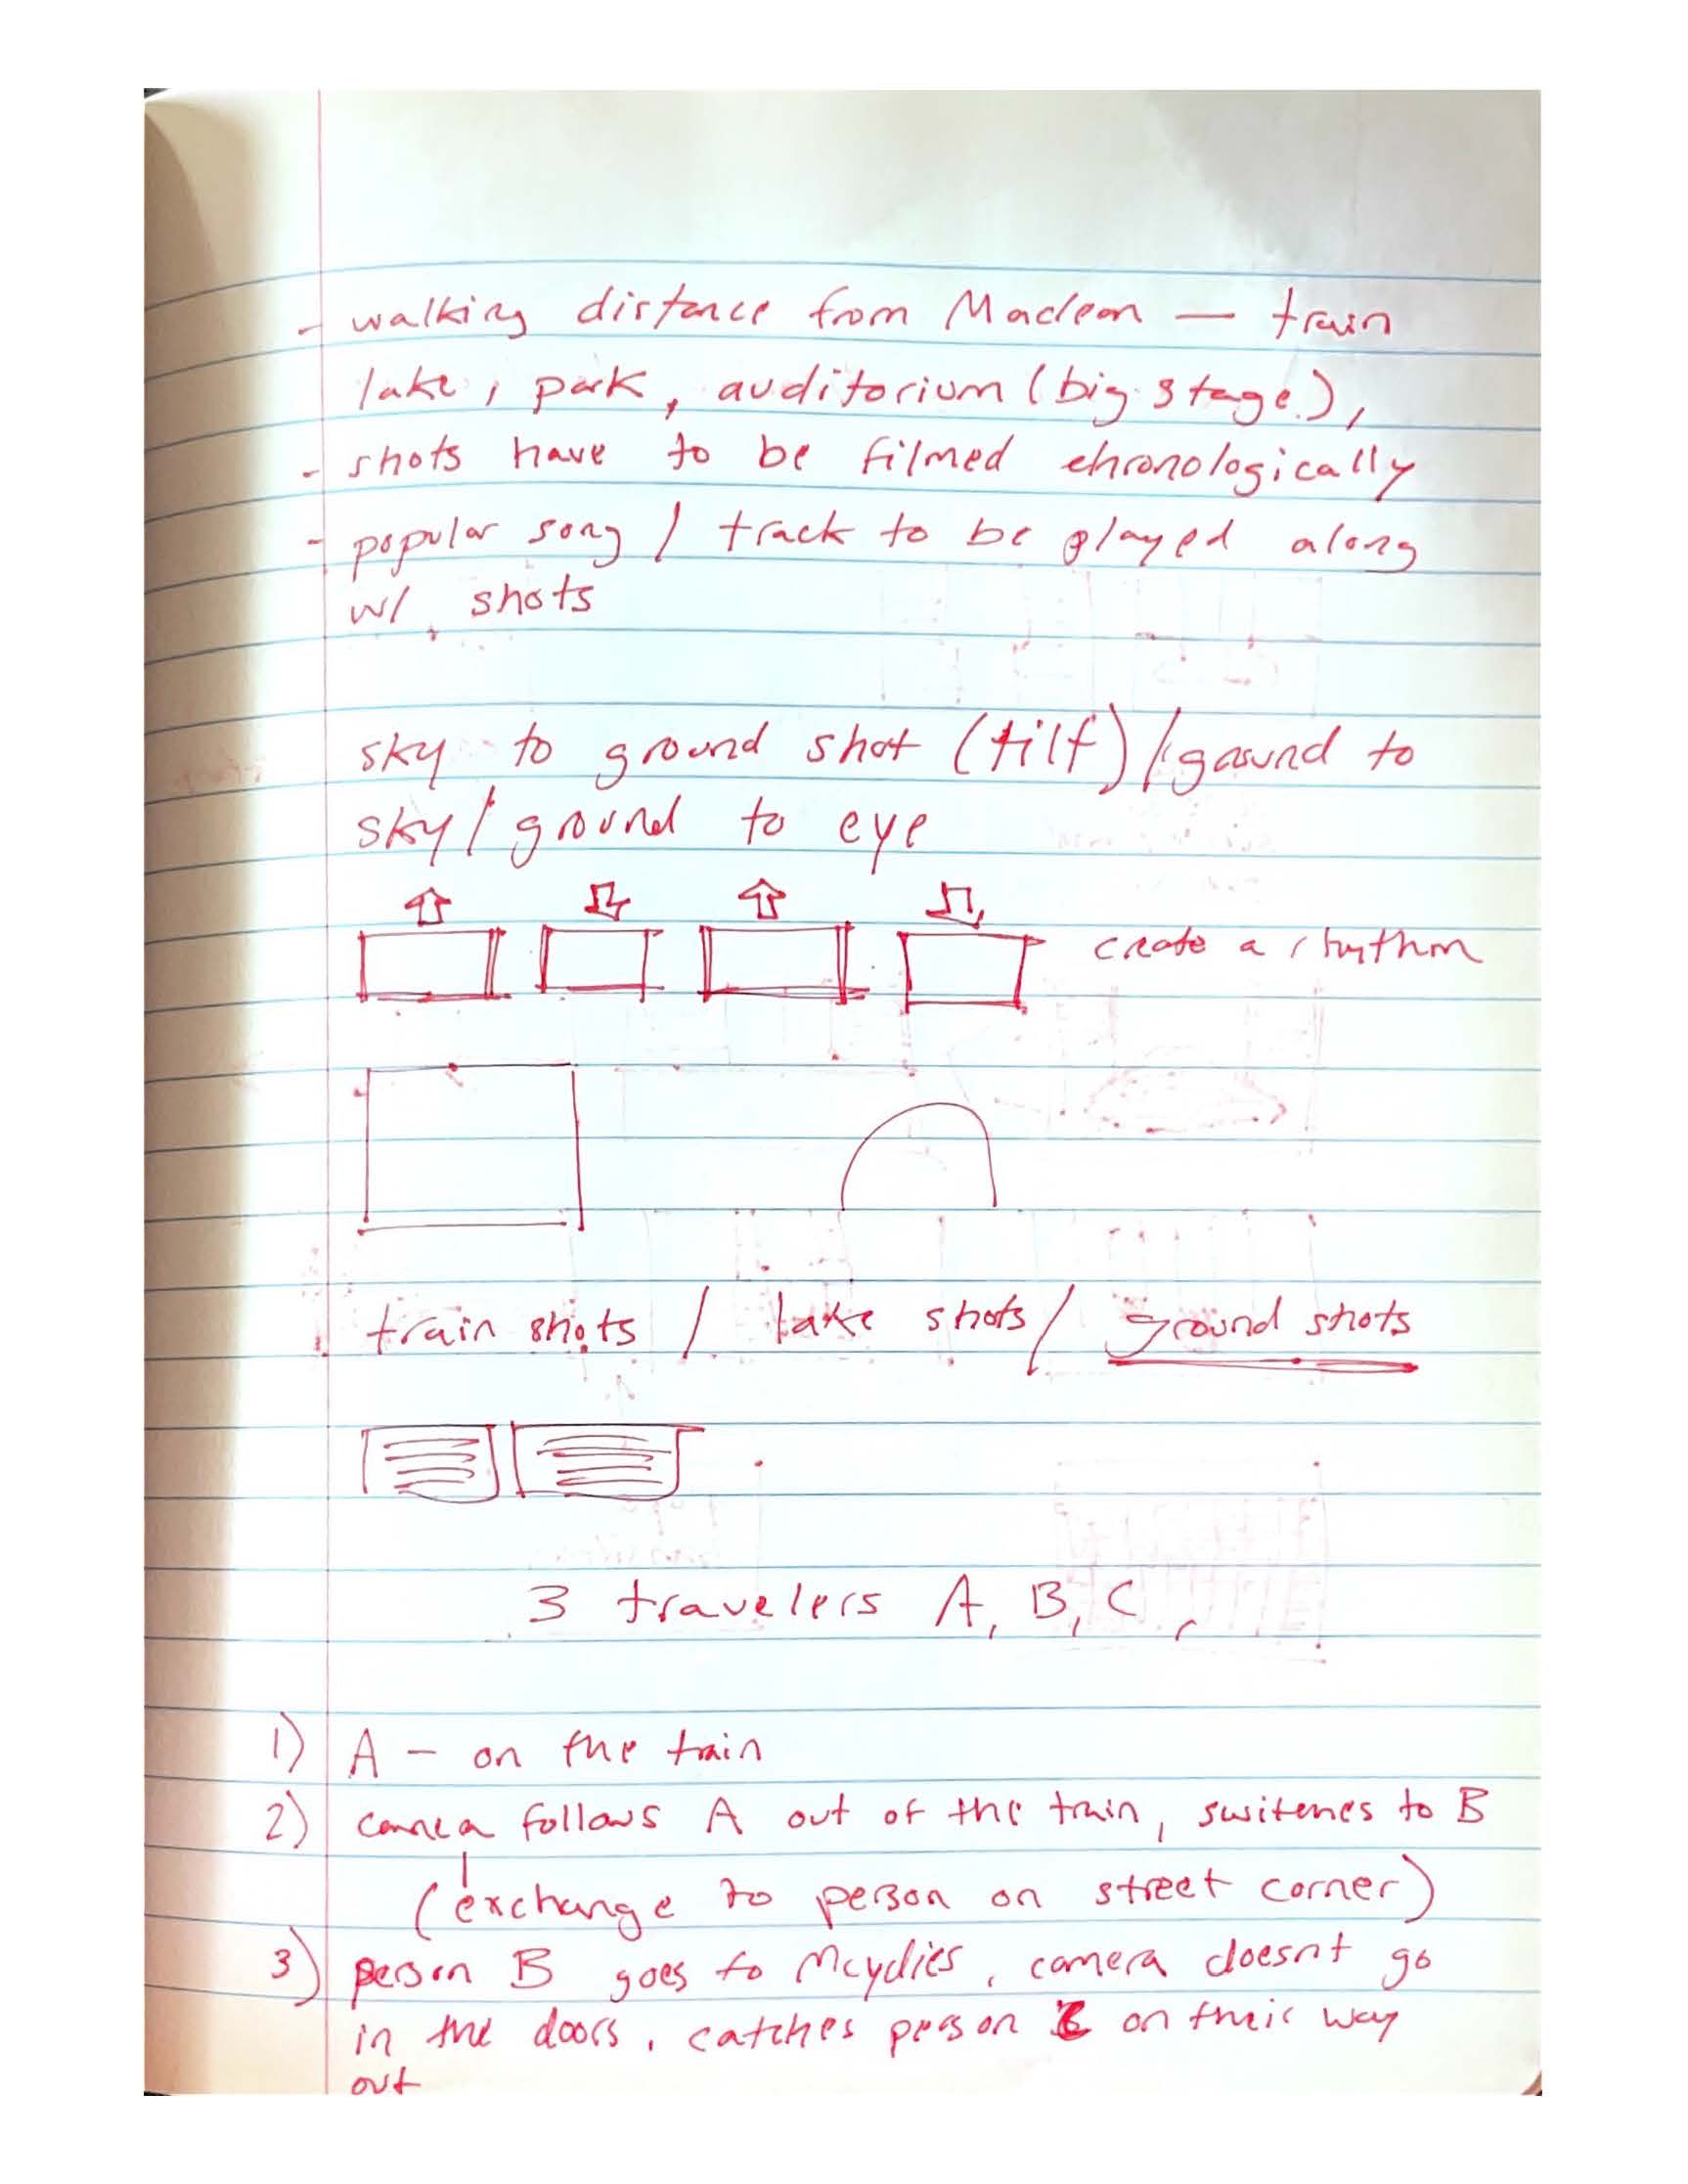 - walking distance from Maclean — train
lake, park, auditorium (big stage),
- shots have to be filmed chronologically
- popular song / track to be played along
w/ shots
sky to ground shot (tilt) / ground to
sky / ground to eye
create a rhythm
train shots / lake shots / ground shots
3 travelers A, B, C,
1) A - on the train
2) camera follows A out of the train, switches to B
(exchange to person on street corner)
3) person B goes to Mcydies, camera doesnt go
in the doors, catches person C on their way
out